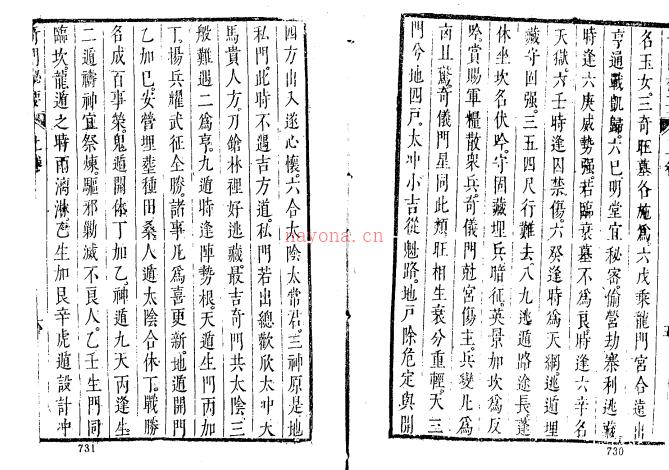 名玉女三奇旺墓各施爲六戊乘龍門宮合遠出
亨通戰凱歸六巳明堂宜秘密偷營劫寨利逃藏
時逢六庚威勢强若臨衰墓不爲良時逢六辛名
天獄六壬時逢囚禁傷六癸逢時爲天網逃遁埋
藏守固强三五四尺行難去八九逃遁路途長蓬
休坐坎名伏吟守固藏埋兵暗征英景加坎爲反
吟賞賜軍糧散衆兵奇儀門尅宮傷主兵變化爲
凶且驚奇儀門星同此類旺相生衰分重輕天三
門兮地四戸太冲小吉從魁路地戸除危定與開
730
四方出入遂心懷六合太陰太常君三神原是地
私門此時不遇吉方道私門若出總歡欣太冲天
馬貴人方刀鎗林裡好逃藏最吉奇門共太陰三
般難遇二爲亨九遁時逢陣勢根天遁生門丙加
丁揚兵耀武征全勝諸事凡爲喜更新地遁開門
乙加巳安營埋塟種田桑人遁太陰合休丁戰勝
名成百事榮鬼遁開休丁加乙神遁九天丙逢生
二遁禱神宜祭煉驅邪勦滅不良人乙壬生門同
臨坎龍遁之時雨滴淋乙生加艮辛虎遁設計冲
奇門秘要
上卷
731
nayona.cn